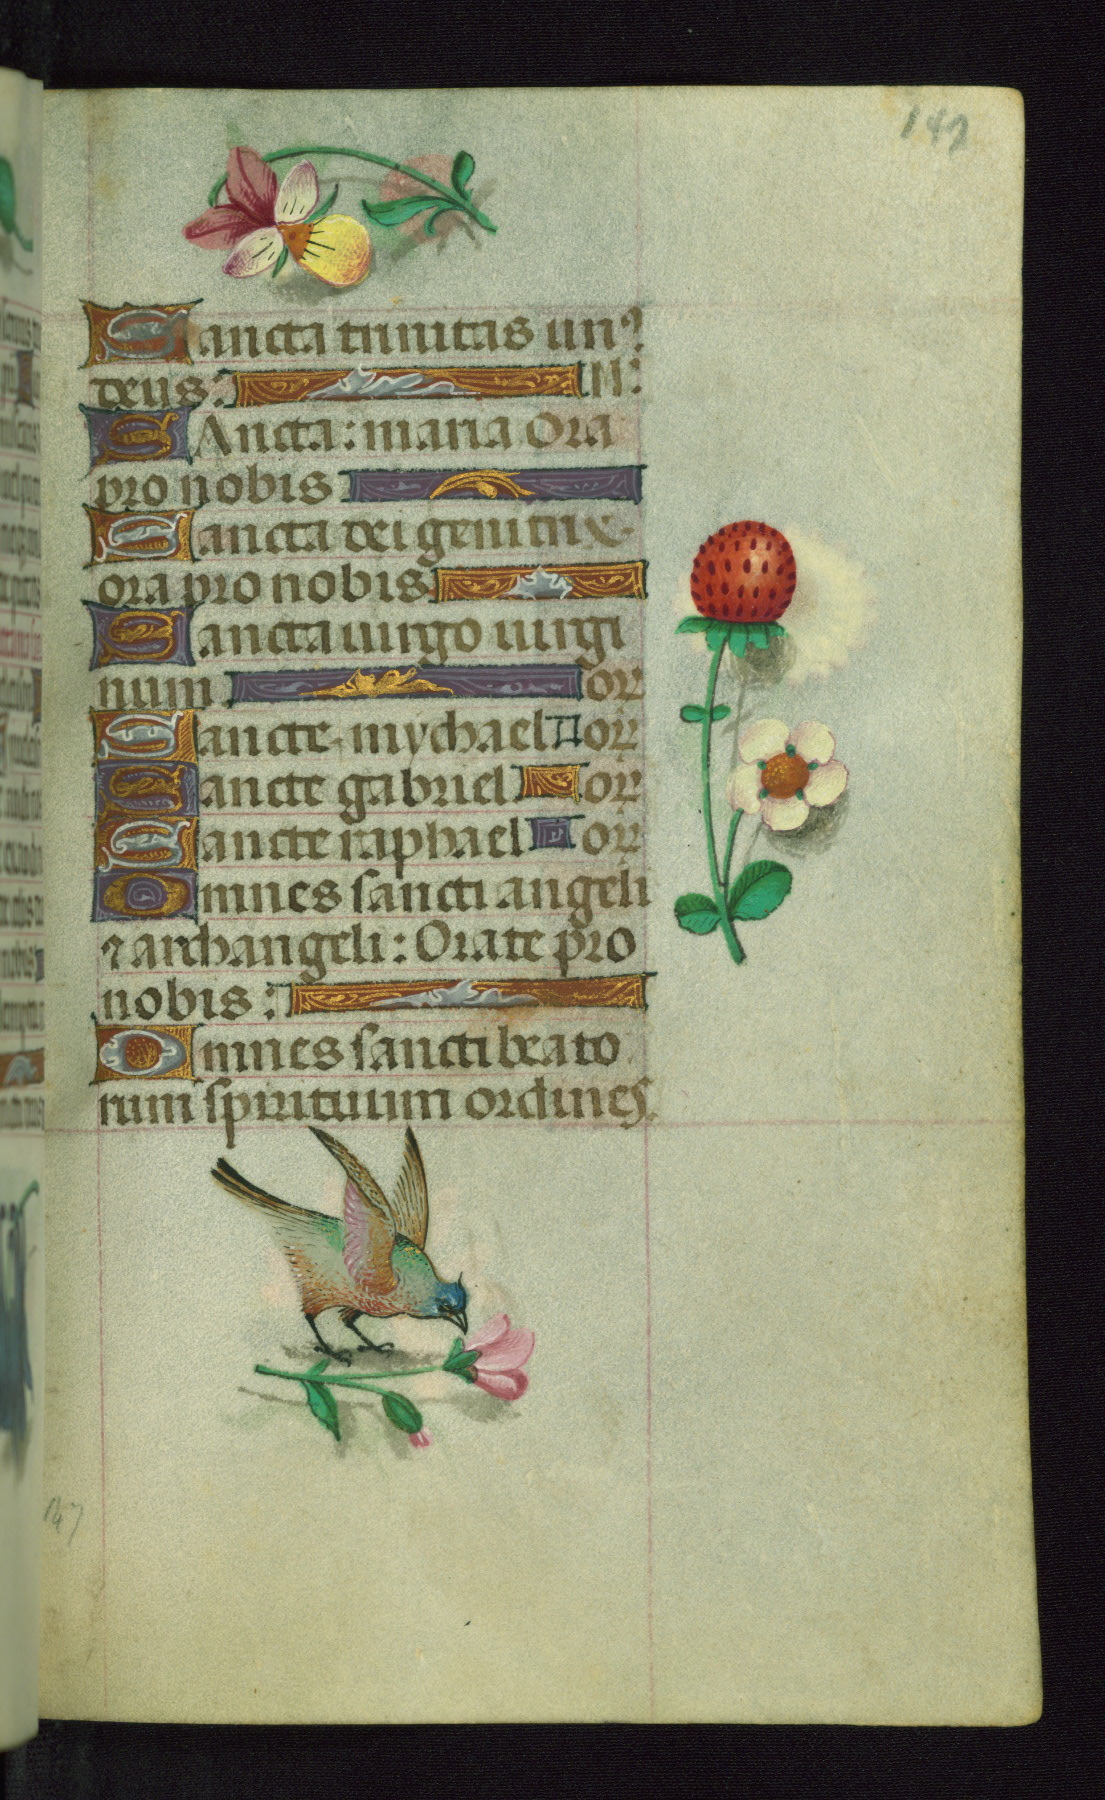 147
Sancta trinitas un9
deus: M:
SAncta: maria Ora
pro nobis
Sancta dei genitrix
ora pro nobis
Sancta uirgo uirgi
num or
Sancte mychael or
Sancte gabriel or
Sancte raphael or
Omnes sancti angeli
⁊ archangeli: Orate pro
nobis:
Omnes sancti beato
rum spirituum ordines.
147